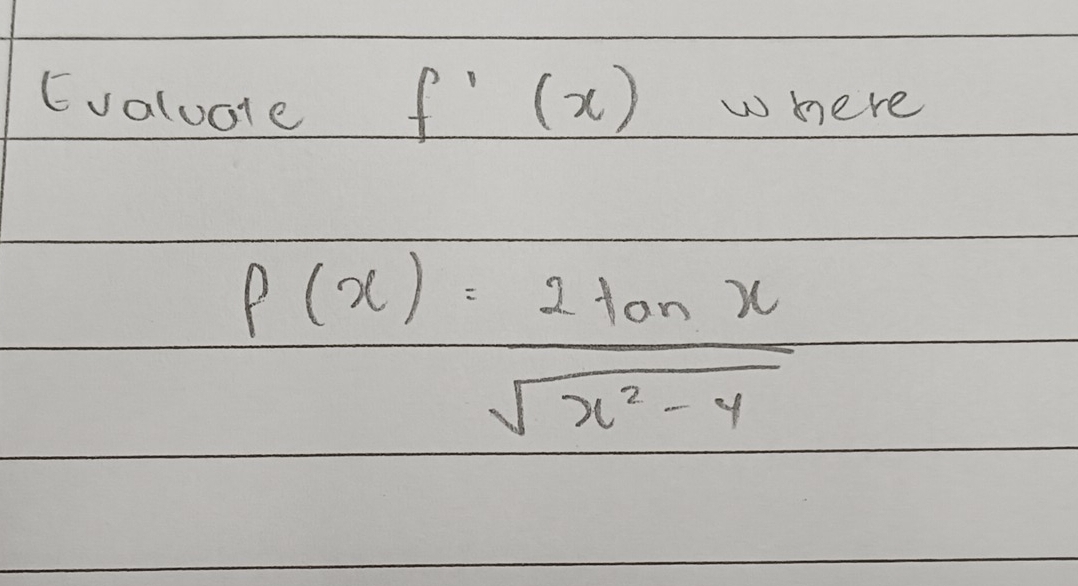 Evaluate f'(x) where
f(x) = 2 tan x
√x² - 4